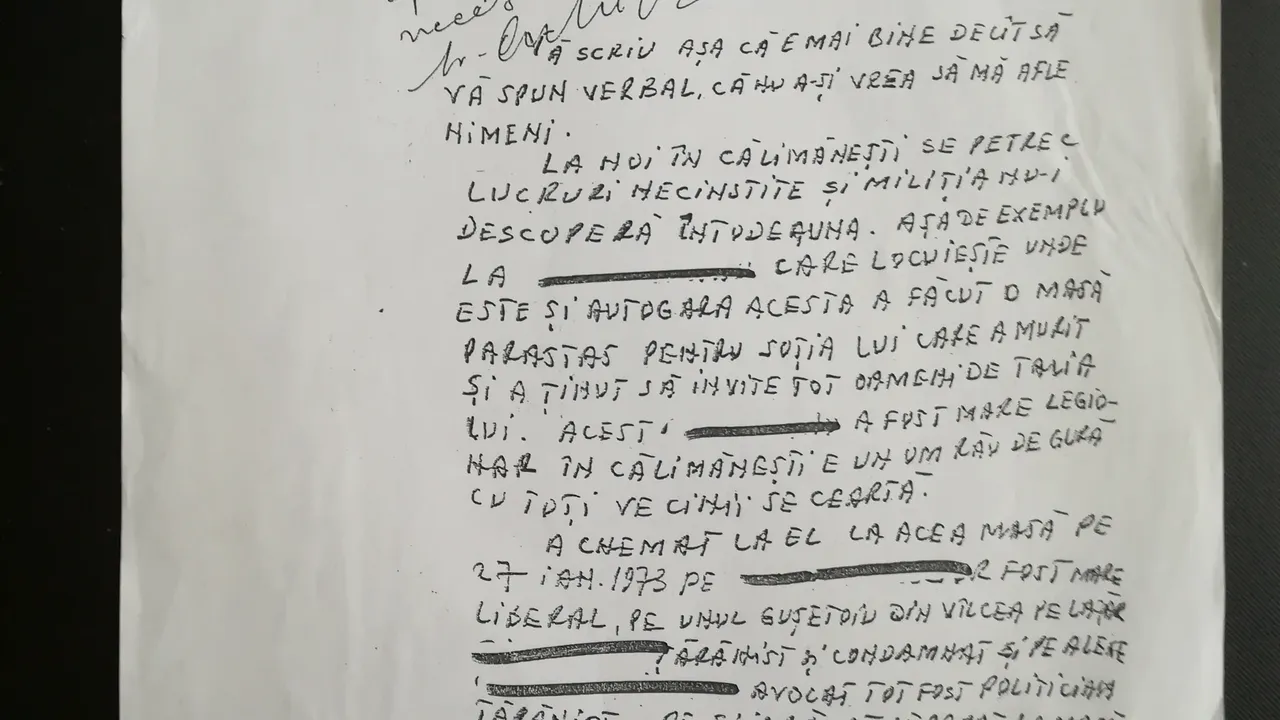 VĂ SCRIU AȘA CĂ E MAI BINE DECÎT SĂ
VĂ SPUN VERBAL, CĂ NU A-ȘI VREA SĂ MĂ AFLE
NIMENI.
LA NOI ÎN CĂLIMĂNEȘTI SE PETREC
LUCRURI NECINSTITE ȘI MILIȚIA NU-I
DESCOPERĂ ÎNTODEAUNA. AȘA DE EXEMPLU
LA CARE LOCUIEȘTE UNDE
ESTE ȘI AUTOGARA ACESTA A FĂCUT O MASĂ
PARASTAS PENTRU SOȚIA LUI CARE A MURIT
ȘI A ȚINUT SĂ INVITE TOT OAMENI DE TALIA
LUI. ACEST A FOST MARE LEGIO-
NAR ÎN CĂLIMĂNEȘTI E UN OM RĂU DE GURĂ
CU TOȚI VECINII SE CEARTĂ.
A CHEMAT LA EL LA ACEA MASĂ PE
27 IAN. 1973 PE FOST MARE
LIBERAL, PE UNUL GUȘETOIU DIN VÎLCEA PE
ȚĂRĂNIST ȘI CONDAMNAT ȘI PE
AVOCAT TOT FOST POLITICIAN